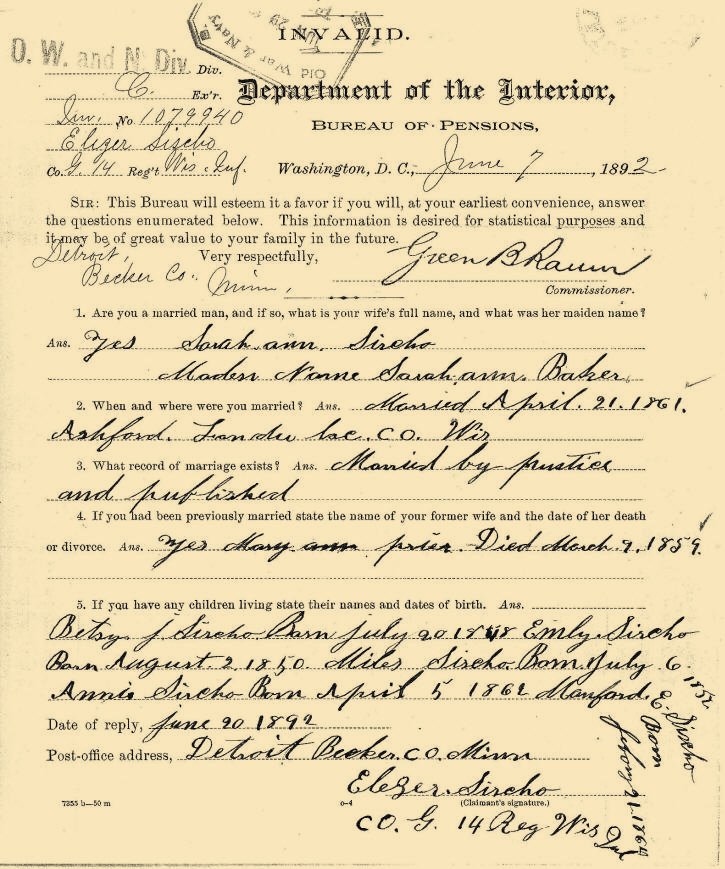 INVALID.
O. W. and N. Div.
Old War & Navy
Div.
C. Ex'r.
Department of the Interior,
Inv. No 1079940
BUREAU OF PENSIONS,
Elezer Sircho
Co. G. 14 Reg't Wis. Inf.
Washington, D. C., June 7, 1892
SIR: This Bureau will esteem it a favor if you will, at your earliest convenience, answer
the questions enumerated below. This information is desired for statistical purposes and
it may be of great value to your family in the future.
Detroit,
Becker Co. Minn.
Very respectfully,
Green B Raum
Commissioner.
1. Are you a married man, and if so, what is your wife's full name, and what was her maiden name?
Ans. Yes Sarah ann. Sircho
Maden Name Sarah ann. Baker
2. When and where were you married? Ans. Married April. 21. 1861.
Ashford. Fondu lac. CO. Wis
3. What record of marriage exists? Ans. Married by justice
and published
4. If you had been previously married state the name of your former wife and the date of her death
or divorce. Ans. Yes Mary ann prier. Died March 9, 1859.
5. If you have any children living state their names and dates of birth. Ans.
Betsy J. Sircho Barn July 20 1848 Emly Sircho
Barn August. 2 1850 Miles Sircho Born July 6. 1852
Annis Sircho Born April 5 1862 Manford.
E. Sircho
Born
21. 1864
Date of reply, june 20 1892
Post-office address, Detroit Becker. CO. Minn
Elezer. Sircho
7355 b—50 m
o-4
(Claimant's signature.)
CO. G. 14 Reg Wis
Inf